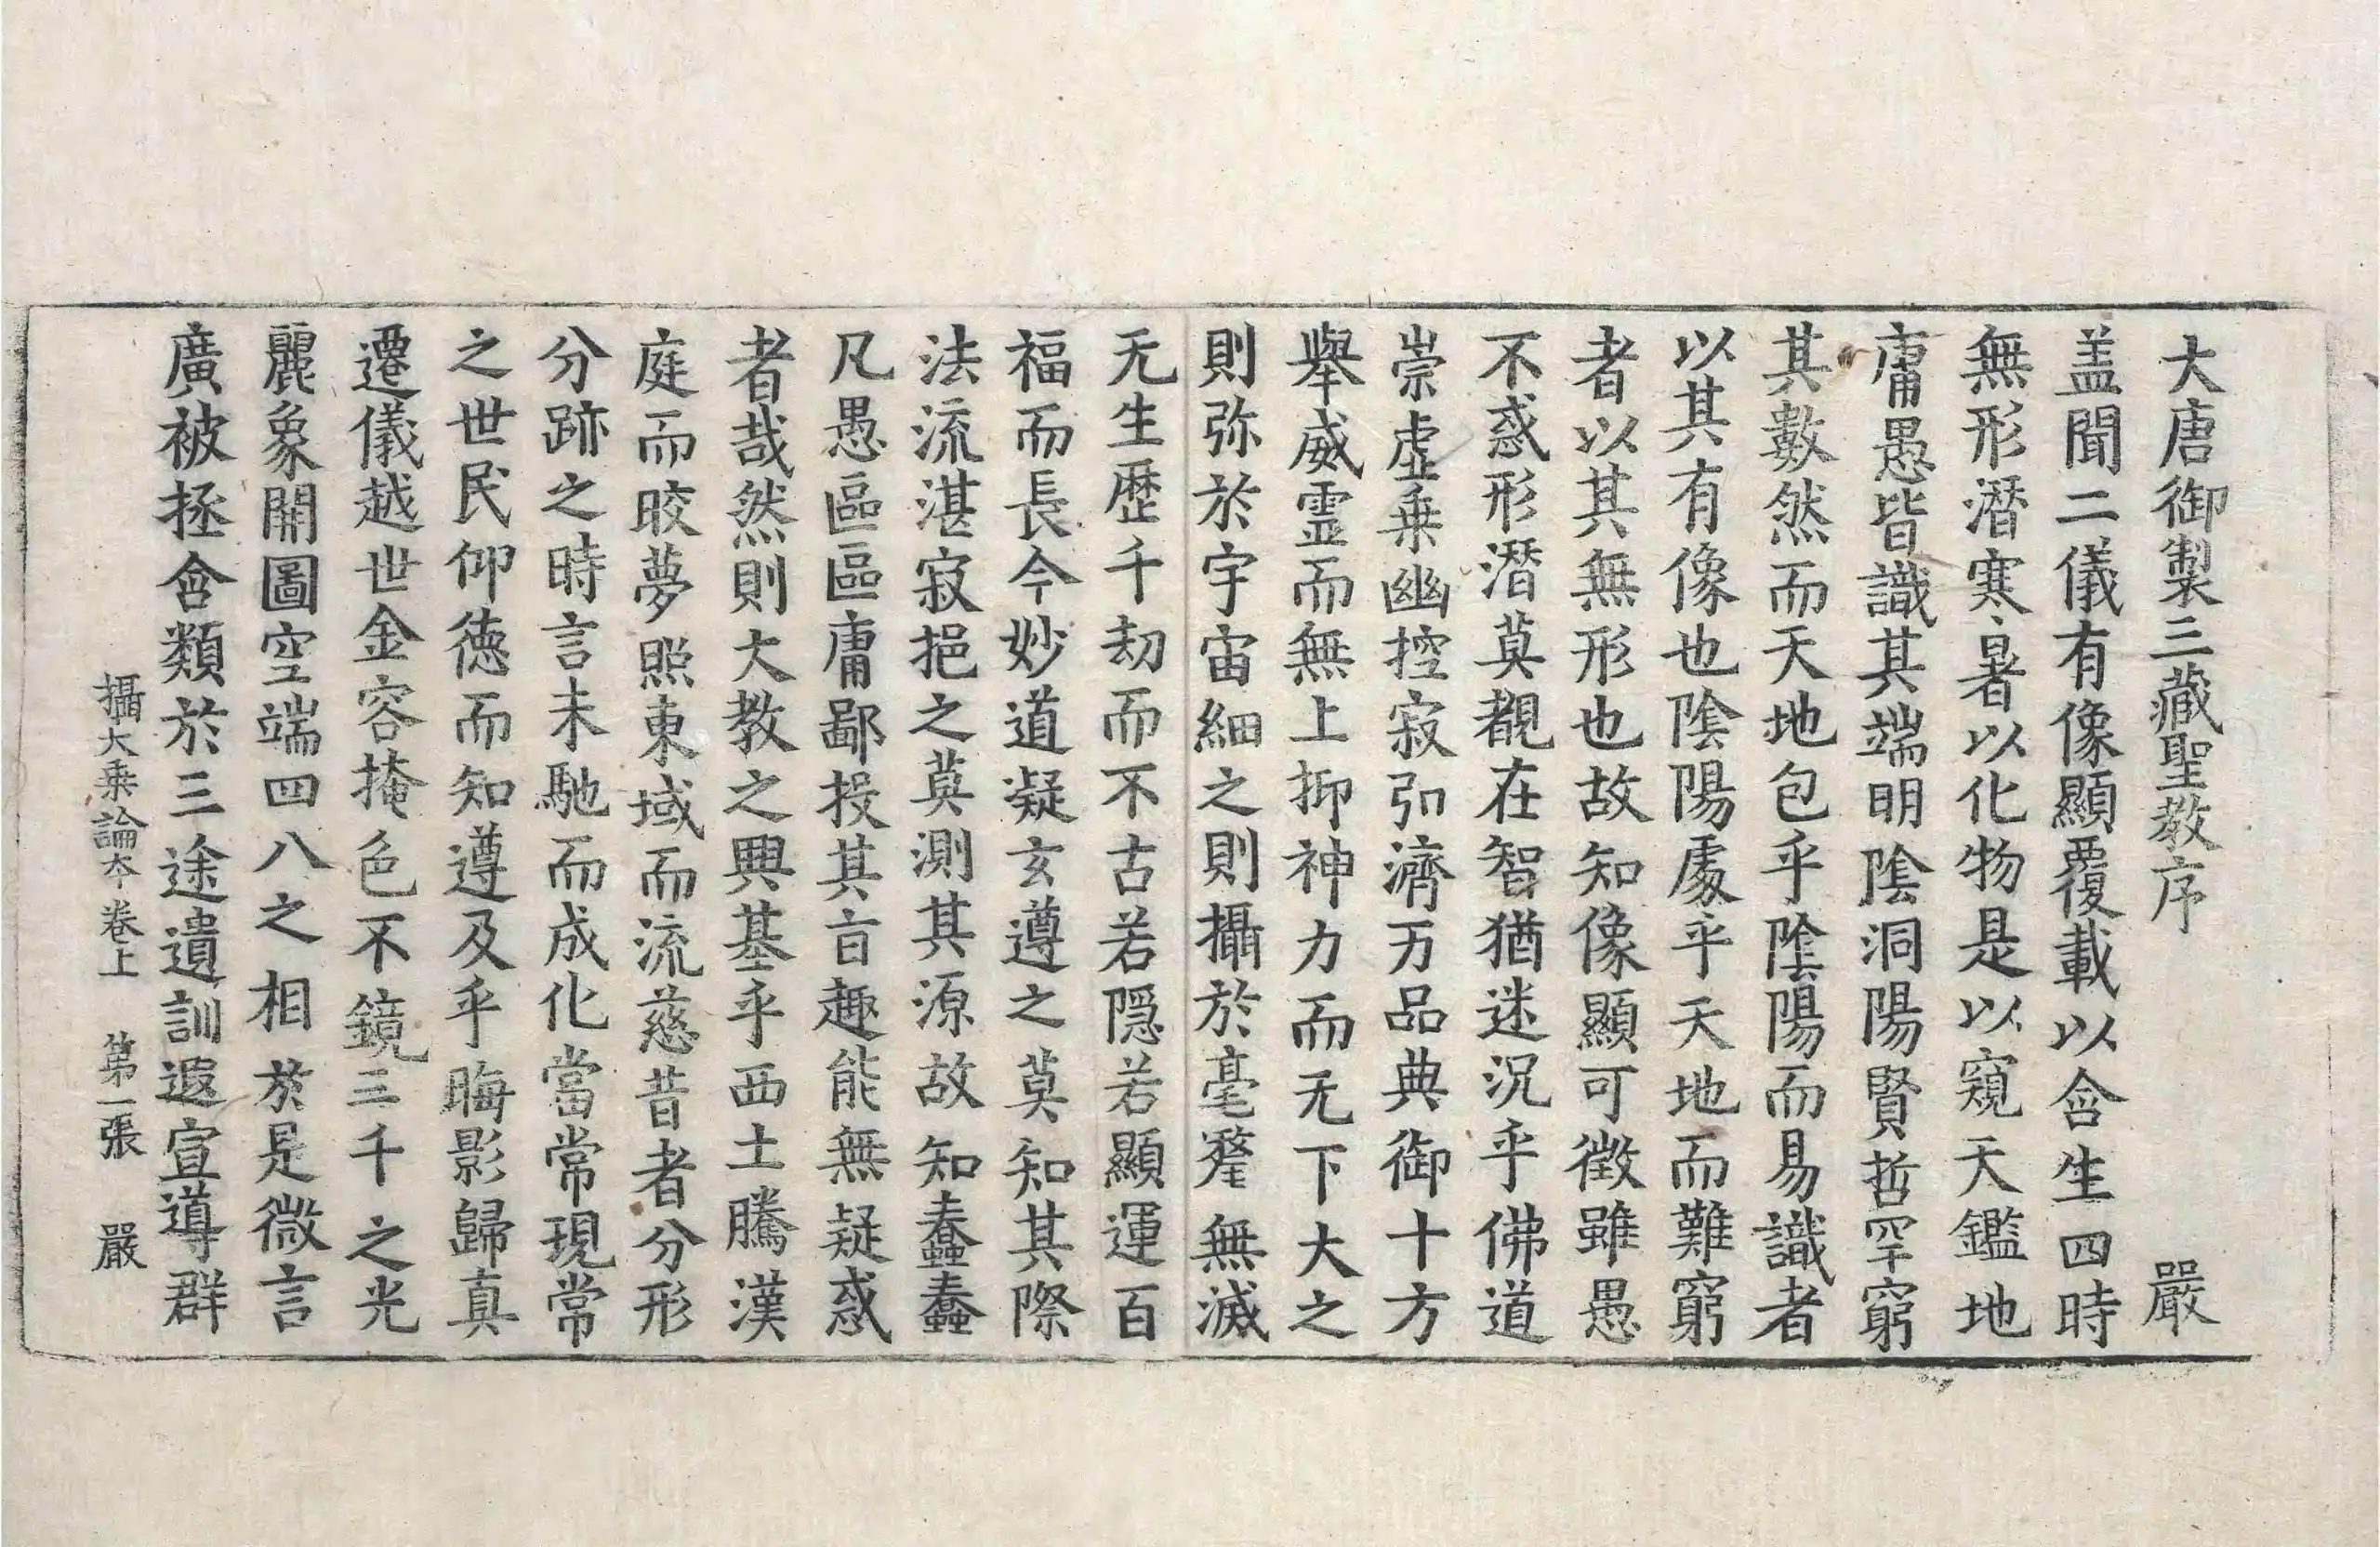 大唐御製三藏聖教序 嚴
盖聞二儀有像顯覆載以含生四時
無形潛寒暑以化物是以窺天鑑地
庸愚皆識其端明陰洞陽賢哲罕窮
其數然而天地包乎陰陽而易識者
以其有像也陰陽處乎天地而難窮
者以其無形也故知像顯可徵雖愚
不惑形潛莫覩在智猶迷況乎佛道
崇虛乗幽控寂弘濟万品典御十方
舉威靈而無上抑神力而无下大之
則弥於宇宙細之則攝於毫氂無滅
无生歷千劫而不古若隠若顯運百
福而長今妙道凝玄遵之莫知其際
法流湛寂挹之莫測其源故知蠢蠢
凡愚區區庸鄙投其旨趣能無疑惑
者哉然則大教之興基乎西土騰漢
庭而皎夢照東域而流慈昔者分形
分跡之時言未馳而成化當常現常
之世民仰德而知遵及乎晦影歸真
遷儀越世金容掩色不鏡三千之光
麗象開圖空端四八之相於是微言
廣被拯含類於三途遺訓遐宣導群
攝大乗論夲卷上 第一張 嚴